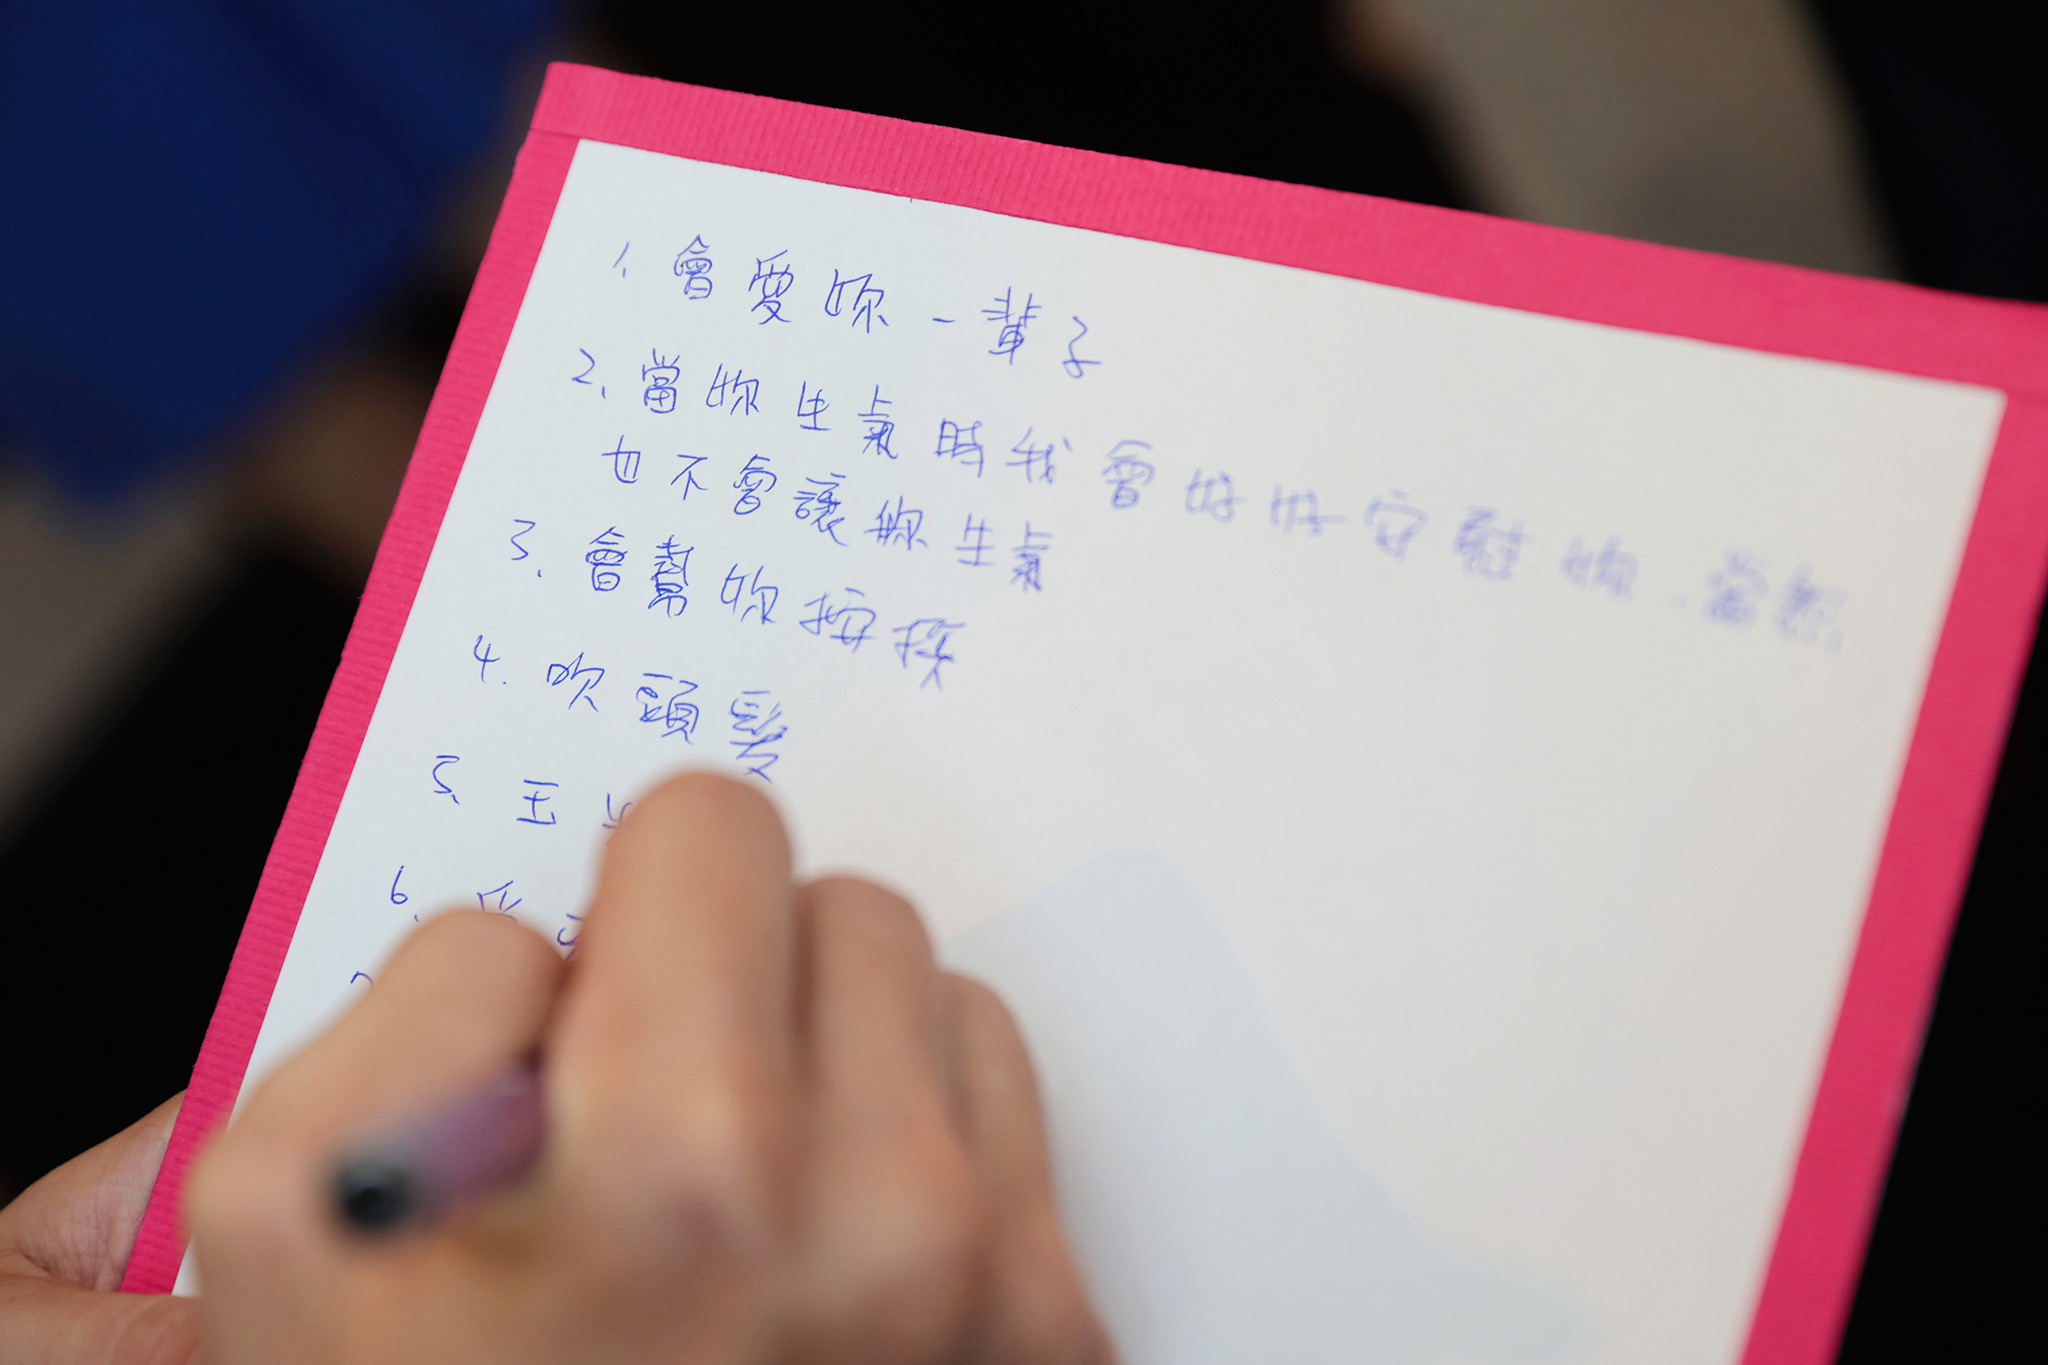 1、會愛妳一輩子
2、當妳生氣時我會好好安慰妳、當然
也不會讓妳生氣
3、會幫妳按摩
4.吹頭髮
5、玉
6、